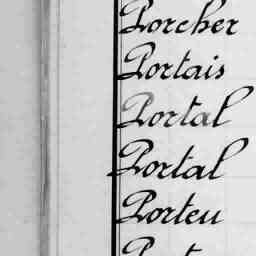 Porcher
Portais
Portal
Portal
Porteu